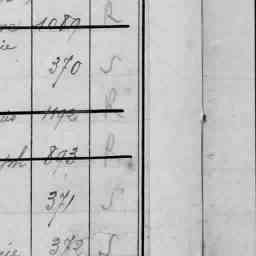 1089 R
ie
370 S
1192 R
ph 893 R
371 S
372 S